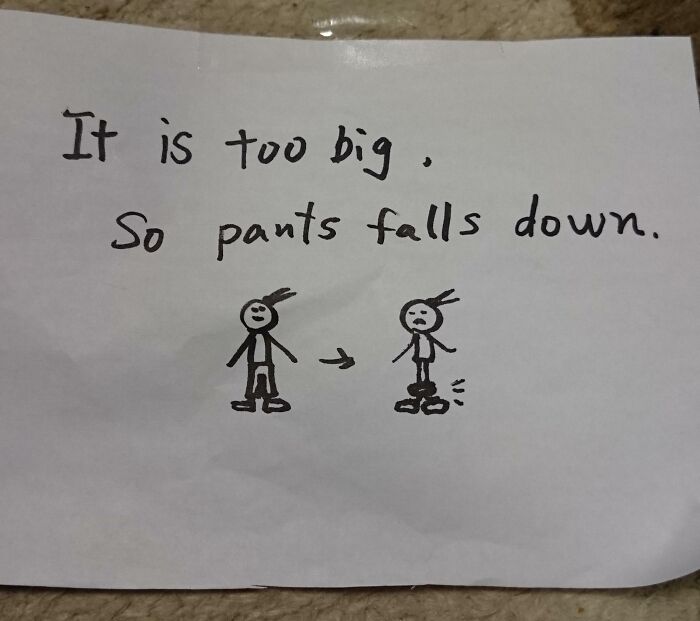 It is too big.
So pants falls down.